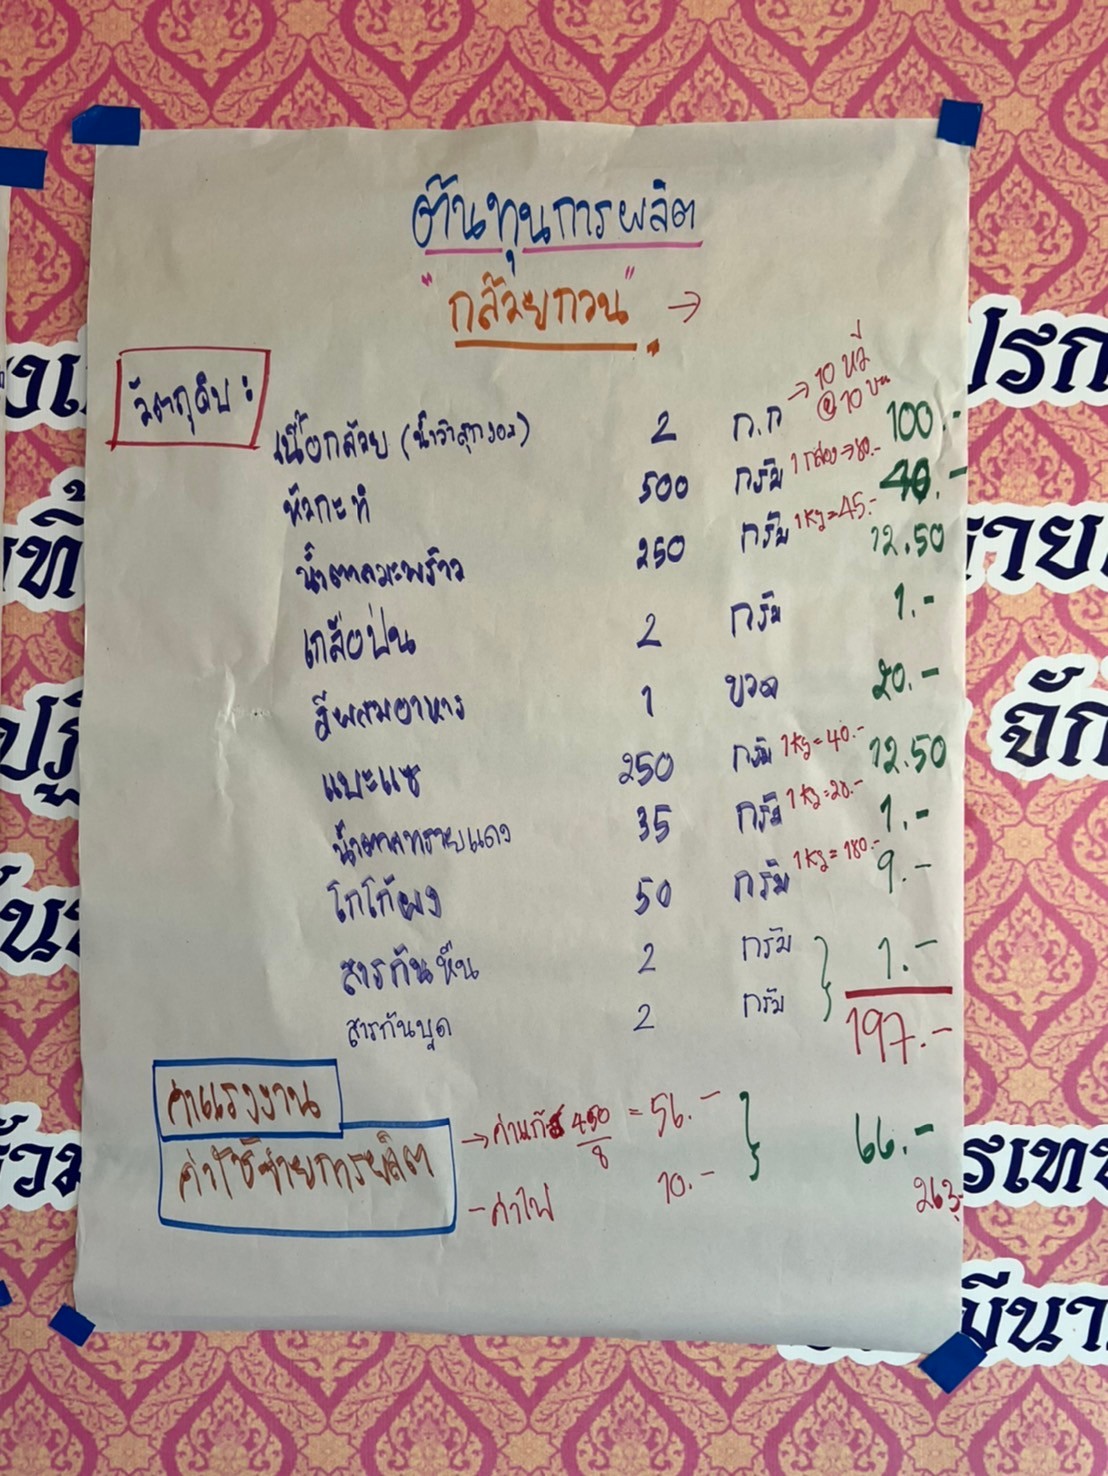 ต้นทุนการผลิต
"กล้วยกวน" →
วัตถุดิบ :
เนื้อกล้วย (น้ำว้าสุกงอม) 2 ก.ก → 10 หวี @ 10 บาท 100.-
หัวกะทิ 500 กรัม 1 กล่อง → 80.- 40.-
น้ำตาลมะพร้าว 250 กรัม 1 kg = 45.- 12.50
เกลือป่น 2 กรัม 1.-
สีผสมอาหาร 1 ขวด 20.-
แบะแซ 250 กรัม 1 kg = 40.- 12.50
น้ำตาลทรายแดง 35 กรัม 1 kg = 28.- 1.-
โกโก้ผง 50 กรัม 1 kg = 180.- 9.-
สารกันหืน 2 กรัม } 1.-
สารกันบูด 2 กรัม
197.-
ค่าแรงงาน
ค่าใช้จ่ายการผลิต → ค่าแก๊ส 450/8 = 56.- } 66.-
- ค่าไฟ 10.-
263.-
ปรก
ราย
จัก
รเท
มีนา